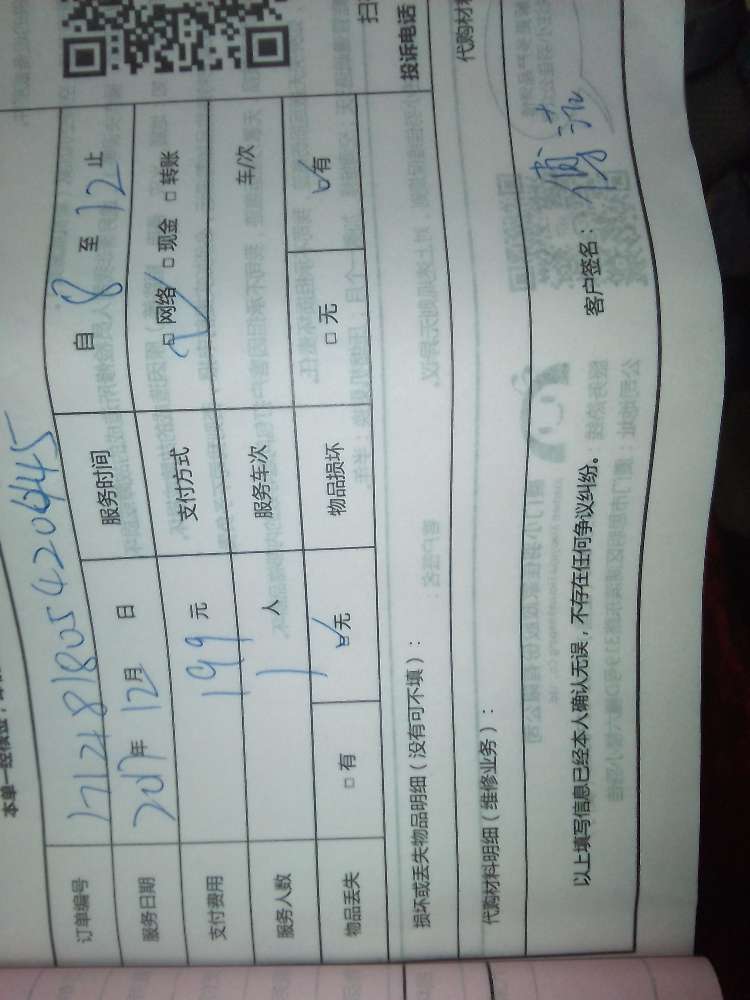 本单一经核金，
订单编号 17121818054206445
服务日期 2017年 12月 日 服务时间 自 8 至 12 止
支付费用 199 元 支付方式 ☑网络 □现金 □转账
服务人数 1 人 服务车次 车/次
物品丢失 □有 ☑无 物品损坏 □无 ☑有
扫
损坏或丢失物品明细（没有可不填）： 投诉电话
代购材料明细（维修业务）： 代购材料
以上填写信息已经本人确认无误，不存在任何争议纠纷。 客户签名：